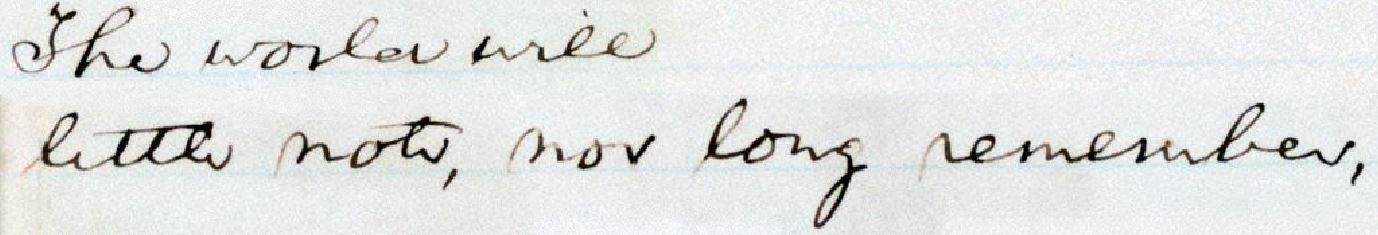 The world will
little note, nor long remember,